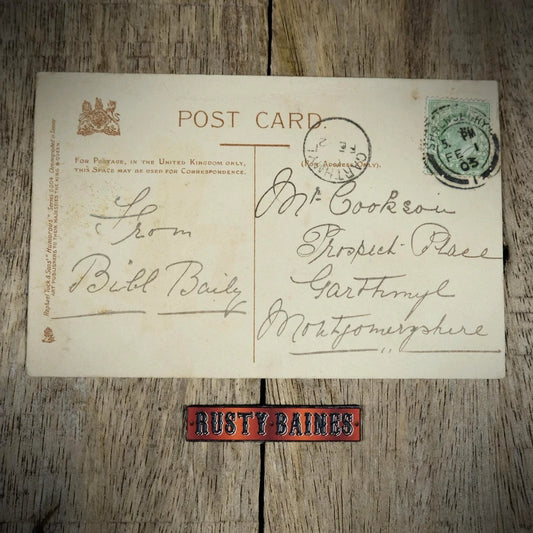 POST CARD.
FOR POSTAGE, IN THE UNITED KINGDOM ONLY,
THIS SPACE MAY BE USED FOR CORRESPONDENCE.
(FOR ADDRESS ONLY).
From
Bibl Baily
Mr Cookson
Prospect Place
Garthmyl
Montgomeryshire
GARTHMYL
FE 2
SHREWSBURY
FE 1
03
Raphael Tuck & Sons' "Humorous"
ART PUBLISHERS TO THEIR MAJESTIES THE KING & QUEEN.
RUSTY·BAINES